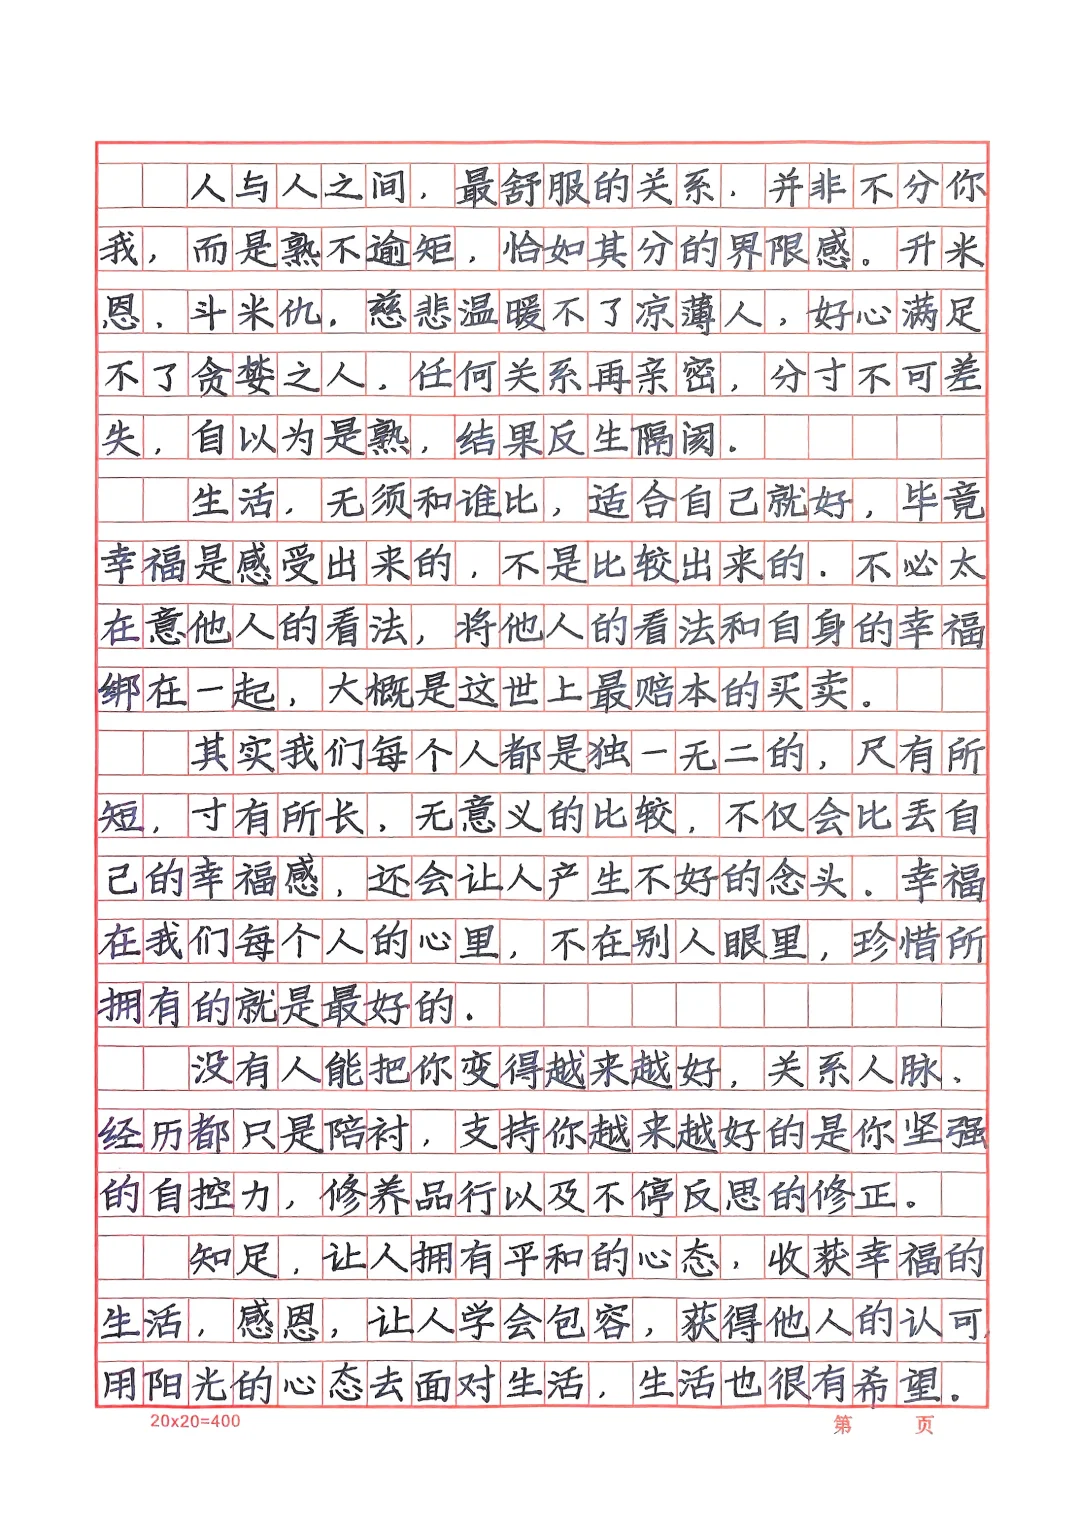 人与人之间，最舒服的关系，并非不分你
我，而是熟不逾矩，恰如其分的界限感。升米
恩，斗米仇，慈悲温暖不了凉薄人，好心满足
不了贪婪之人，任何关系再亲密，分寸不可差
失，自以为是熟，结果反生隔阂.
生活，无须和谁比，适合自己就好，毕竟
幸福是感受出来的，不是比较出来的.不必太
在意他人的看法，将他人的看法和自身的幸福
绑在一起，大概是这世上最赔本的买卖。
其实我们每个人都是独一无二的，尺有所
短，寸有所长，无意义的比较，不仅会比丢自
己的幸福感，还会让人产生不好的念头.幸福
在我们每个人的心里，不在别人眼里，珍惜所
拥有的就是最好的.
没有人能把你变得越来越好，关系人脉、
经历都只是陪衬，支持你越来越好的是你坚强
的自控力，修养品行以及不停反思的修正。
知足，让人拥有平和的心态，收获幸福的
生活，感恩，让人学会包容，获得他人的认可,
用阳光的心态去面对生活，生活也很有希望。
20x20=400 第 页